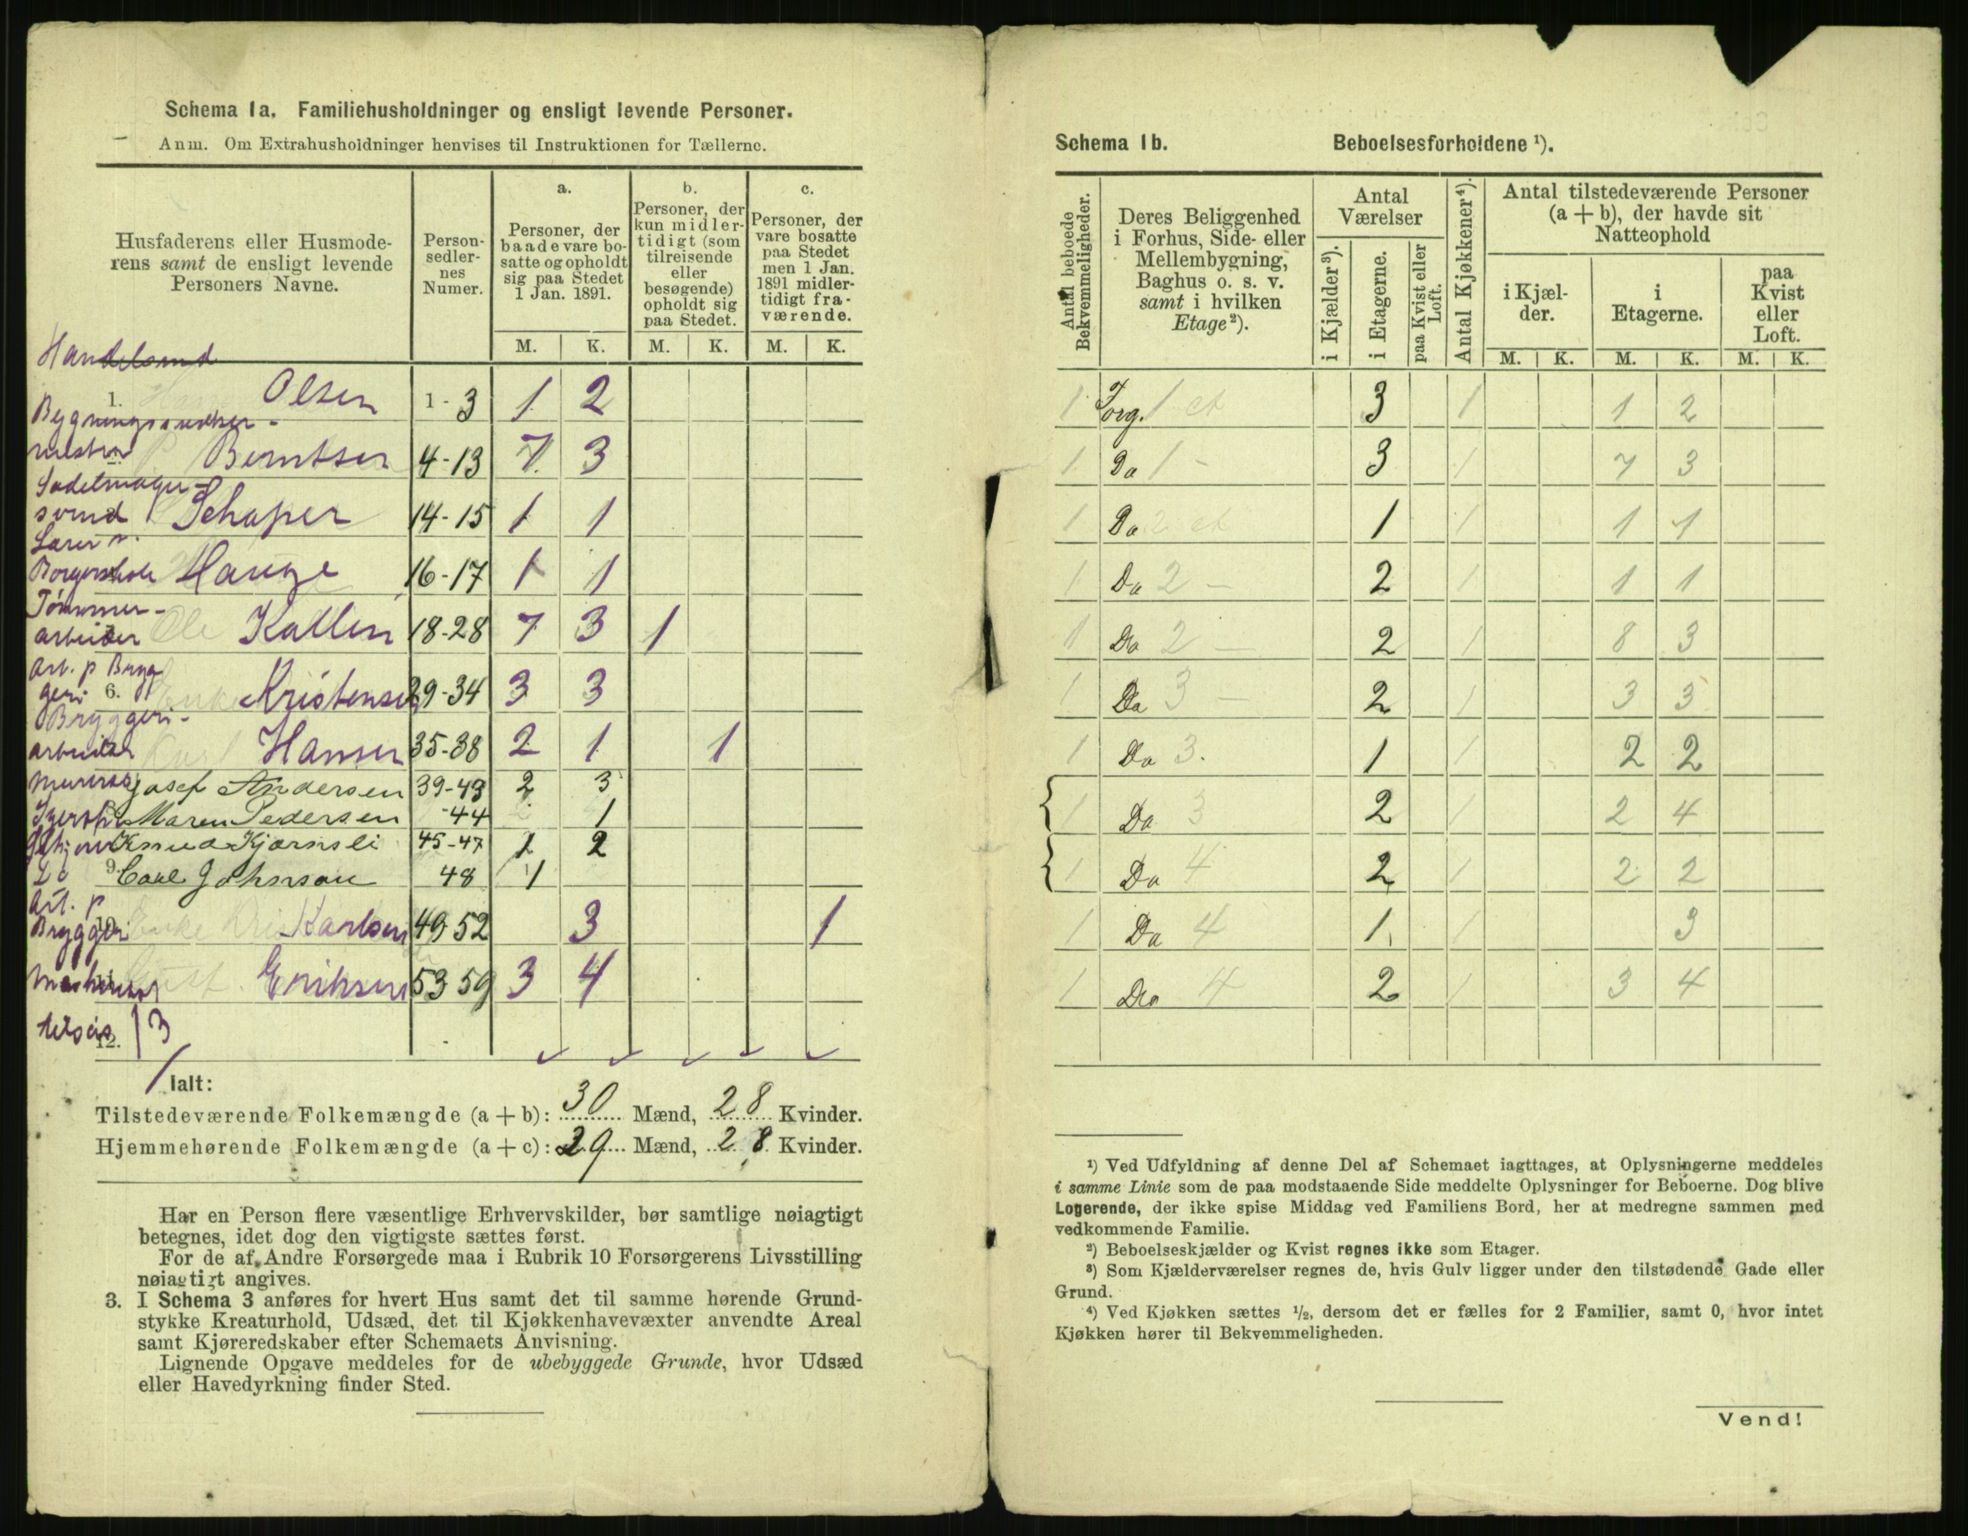 Schema 1a. Familiehusholdninger og ensligt levende Personer.
Anm. Om Extrahusholdninger henvises til Instruktionen for Tællerne.
Husfaderens eller Husmode-
rens samt de ensligt levende
Personers Navne.
Person-
sedler-
nes
Numer.
a.
Personer, der
baade vare bo-
satte og opholdt
sig paa Stedet
1 Jan. 1891.
b.
Personer, der
kun midler-
tidigt (som
tilreisende
eller
besøgende)
opholdt sig
paa Stedet.
c.
Personer, der
vare bosatte
paa Stedet
men 1 Jan.
1891 midler-
tidigt fra-
værende.
M. K. M. K. M. K.
Handelsmd
1. Olsen 1-3 1 2
Bygningssnedker-
mester Berntsen 4-13 7 3
Sadelmager-
svend Schaper 14-15 1 1
Lærer v.
Borgerskole Hauge 16-17 1 1
Tømmer-
arbeider Ole Kallen 18-28 7 3 1
Arb. p Bryg
geri 6. Enke Kristensen 29-34 3 3
Bryggeri-
arbeider Karl Hansen 35-38 2 1 1
Josef Andersen 39-43 2 3
Maren Pedersen -44 1
Knud Kjærnsli 45-47 1 2
9. Carl Johnson 48 1
Arb. p
Bryggeri 10. Enke Karlsen 49-52 3 1
Eriksen 53-59 3 4
13
12.
Ialt:
Tilstedeværende Folkemængde (a + b): 30 Mænd, 28 Kvinder.
Hjemmehørende Folkemængde (a + c): 29 Mænd, 28 Kvinder.
Har en Person flere væsentlige Erhvervskilder, bør samtlige nøiagtigt
betegnes, idet dog den vigtigste sættes først.
For de af Andre Forsørgede maa i Rubrik 10 Forsørgerens Livsstilling
nøiagtigt angives.
3. I Schema 3 anføres for hvert Hus samt det til samme hørende Grund-
stykke Kreaturhold, Udsæd, det til Kjøkkenhavevæxter anvendte Areal
samt Kjøreredskaber efter Schemaets Anvisning.
Lignende Opgave meddeles for de ubebyggede Grunde, hvor Udsæd
eller Havedyrkning finder Sted.
Schema 1b. Beboelsesforholdene ¹).
Antal beboede
Bekvemmeligheder.
Deres Beliggenhed
i Forhus, Side- eller
Mellembygning,
Baghus o. s. v.
samt i hvilken
Etage²).
Antal
Værelser
i Kjælder³).
i Etagerne.
paa Kvist eller
Loft.
Antal Kjøkkener⁴).
Antal tilstedeværende Personer
(a + b), der havde sit
Natteophold
i Kjæl-
der.
i
Etagerne.
paa
Kvist
eller
Loft.
M. K. M. K. M. K.
1 Forg. 1 et 3 1 1 2
1 Do 1 - 3 1 7 3
1 Do 2 et 1 1 1 1
1 Do 2 - 2 1 1 1
1 Do 2 - 2 1 8 3
1 Do 3 - 2 1 3 3
1 Do 3. 1 1 2 2
1 Do 3 2 1 2 4
1 Do 4 2 1 2 2
1 Do 4 1 1 3
1 Do 4 2 1 3 4
¹) Ved Udfyldning af denne Del af Schemaet iagttages, at Oplysningerne meddeles
i samme Linie som de paa modstaaende Side meddelte Oplysninger for Beboerne. Dog blive
Logerende, der ikke spise Middag ved Familiens Bord, her at medregne sammen med
vedkommende Familie.
²) Beboelseskjælder og Kvist regnes ikke som Etager.
³) Som Kjælderværelser regnes de, hvis Gulv ligger under den tilstødende Gade eller
Grund.
⁴) Ved Kjøkken sættes ½, dersom det er fælles for 2 Familier, samt 0, hvor intet
Kjøkken hører til Bekvemmeligheden.
Vend!